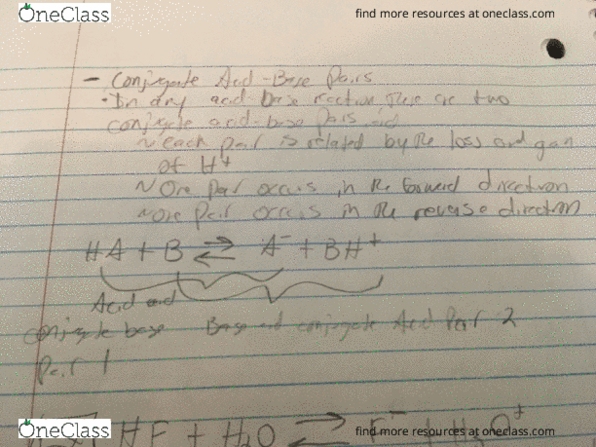 OneClass
find more resources at oneclass.com
- Conjugate Acid-Base Pairs
• In any acid-base reaction, there are two
conjugate acid-base pairs
~ each pair is related by the loss and gain
of H+
~ One pair occurs in the forward direction
~ one pair occurs in the reverse direction
HA + B ⇌ A⁻ + BH⁺
Acid and
conjugate base Base and conjugate Acid Pair 2
Pair 1
HF + H₂O ⇌ F⁻ + H₃O⁺
OneClass
find more resources at oneclass.com